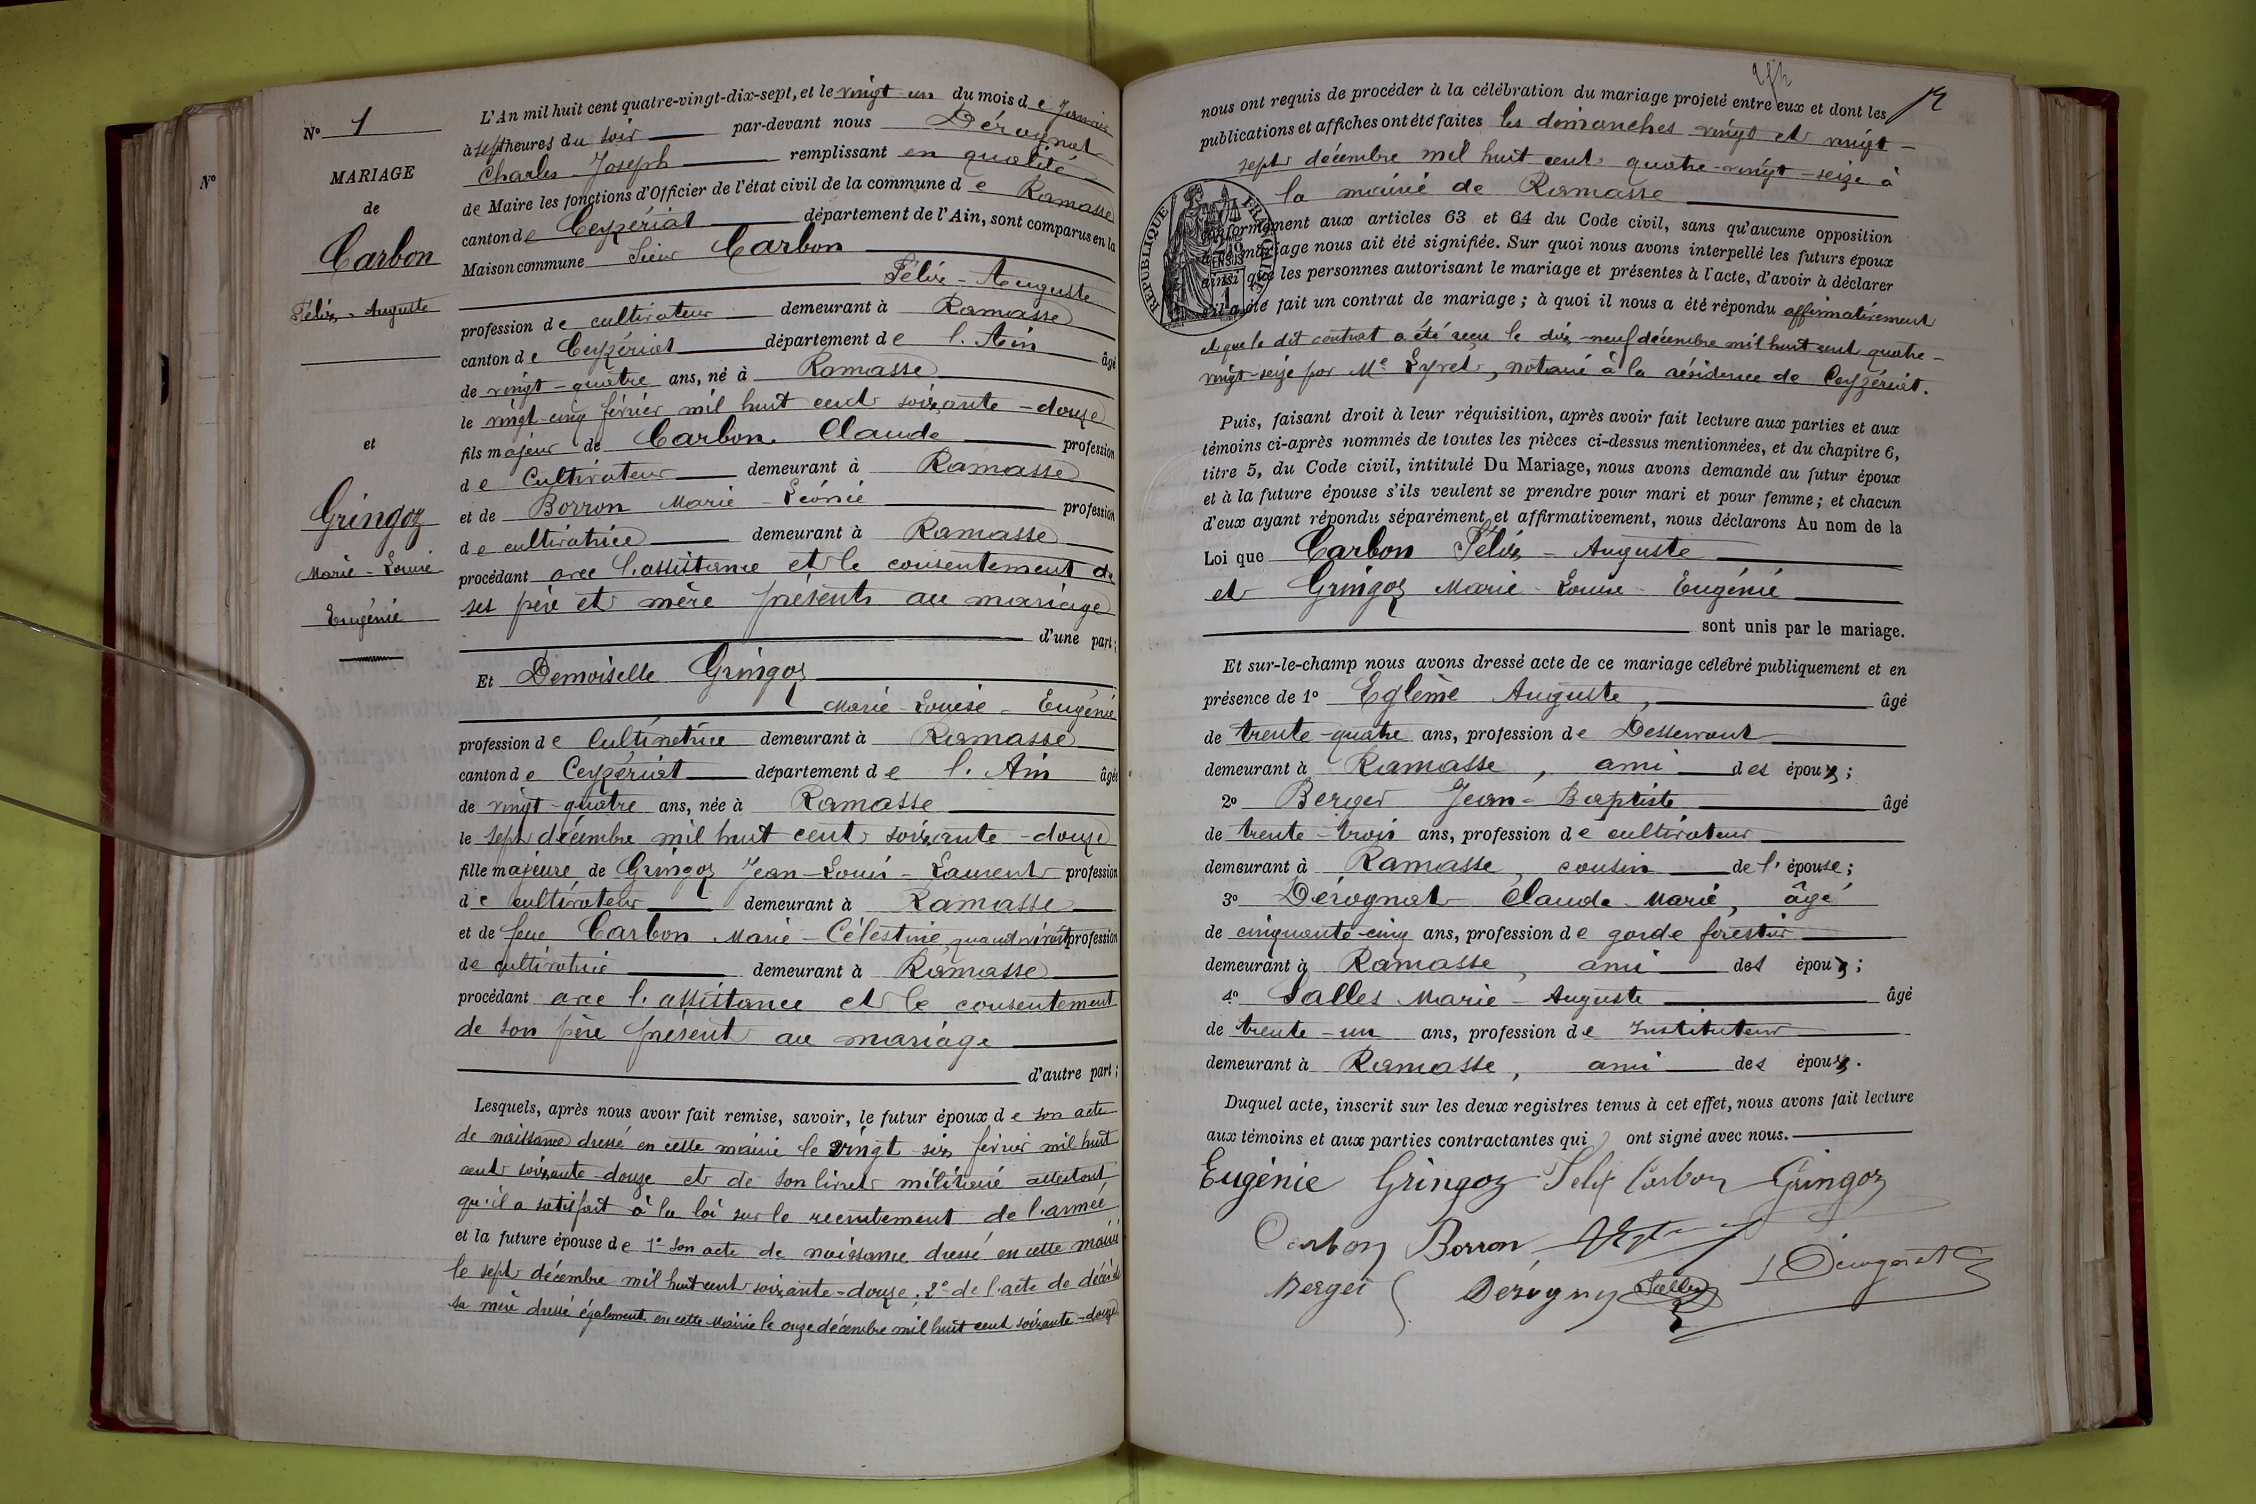 N°
N° 1
MARIAGE
de
Carbon
Félix-Auguste
et
Gringoz
Marie-Louise
Eugénie
L'An mil huit cent quatre-vingt-dix-sept, et le vingt-un du mois de Janvier
à sept heures du soir par-devant nous Dérognat
Charles-Joseph remplissant en qualité
de Maire les fonctions d'Officier de l'état civil de la commune de Ramasse
canton de Ceyzériat département de l'Ain, sont comparus en la
Maison commune Sieur Carbon
Félix-Auguste
profession de cultivateur demeurant à Ramasse
canton de Ceyzériat département de l'Ain âgé
de vingt-quatre ans, né à Ramasse
le vingt-cinq février mil huit cent soixante-douze
fils majeur de Carbon Claude profession
de Cultivateur demeurant à Ramasse
et de Borron Marie-Léonie profession
de cultivatrice demeurant à Ramasse
procédant avec l'assistance et le consentement de
ses père et mère présents au mariage
d'une part;
Et Demoiselle Gringoz
Marie-Louise-Eugénie
profession de Cultivatrice demeurant à Ramasse
canton de Ceyzériat département de l'Ain âgée
de vingt-quatre ans, née à Ramasse
le sept décembre mil huit cent soixante-douze
fille majeure de Gringoz Jean-Louis-Laurent profession
de cultivateur demeurant à Ramasse
et de feue Carbon Marie-Célestine, quand vivait profession
de cultivatrice demeurant à Ramasse
procédant avec l'assistance et le consentement
de son père présent au mariage
d'autre part;
Lesquels, après nous avoir fait remise, savoir, le futur époux de son acte
de naissance dressé en cette mairie le vingt-six février mil huit
cent soixante-douze et de son livret militaire attestant
qu'il a satisfait à la loi sur le recrutement de l'armée
et la future épouse de 1° son acte de naissance dressé en cette mairie
le sept décembre mil huit cent soixante-douze. 2° de l'acte de décès de
sa mère dressé également en cette Mairie le onze décembre mil huit cent soixante-douze
nous ont requis de procéder à la célébration du mariage projeté entre eux et dont les
publications et affiches ont été faites les dimanches vingt et vingt-
sept décembre mil huit cent quatre-vingt-seize à
la mairie de Ramasse
RÉPUBLIQUE FRANÇAISE
conformément aux articles 63 et 64 du Code civil, sans qu'aucune opposition
à ce mariage nous ait été signifiée. Sur quoi nous avons interpellé les futurs époux
ainsi que les personnes autorisant le mariage et présentes à l'acte, d'avoir à déclarer
s'il a été fait un contrat de mariage; à quoi il nous a été répondu affirmativement
et que le dit contrat a été reçu le dix-neuf décembre mil huit cent quatre-
vingt-seize par Me Eyret, notaire à la résidence de Ceyzériat.
Puis, faisant droit à leur réquisition, après avoir fait lecture aux parties et aux
témoins ci-après nommés de toutes les pièces ci-dessus mentionnées, et du chapitre 6,
titre 5, du Code civil, intitulé Du Mariage, nous avons demandé au futur époux
et à la future épouse s'ils veulent se prendre pour mari et pour femme; et chacun
d'eux ayant répondu séparément et affirmativement, nous déclarons Au nom de la
Loi que Carbon Félix-Auguste
et Gringoz Marie-Louise-Eugénie
sont unis par le mariage.
Et sur-le-champ nous avons dressé acte de ce mariage célébré publiquement et en
présence de 1° Eglème Auguste, âgé
de trente-quatre ans, profession de Desservant
demeurant à Ramasse, ami des époux;
2° Berger Jean-Baptiste âgé
de trente-trois ans, profession de cultivateur
demeurant à Ramasse, cousin de l'épouse;
3° Dérognat Claude Marie, âgé
de cinquante-cinq ans, profession de garde forestier
demeurant à Ramasse, ami des époux;
4° Salles Marie-Auguste âgé
de trente-un ans, profession de Instituteur
demeurant à Ramasse, ami des époux.
Duquel acte, inscrit sur les deux registres tenus à cet effet, nous avons fait lecture
aux témoins et aux parties contractantes qui ont signé avec nous.
Eugénie Gringoz Félix Carbon Gringoz
Carbon Borron
Berger Salles